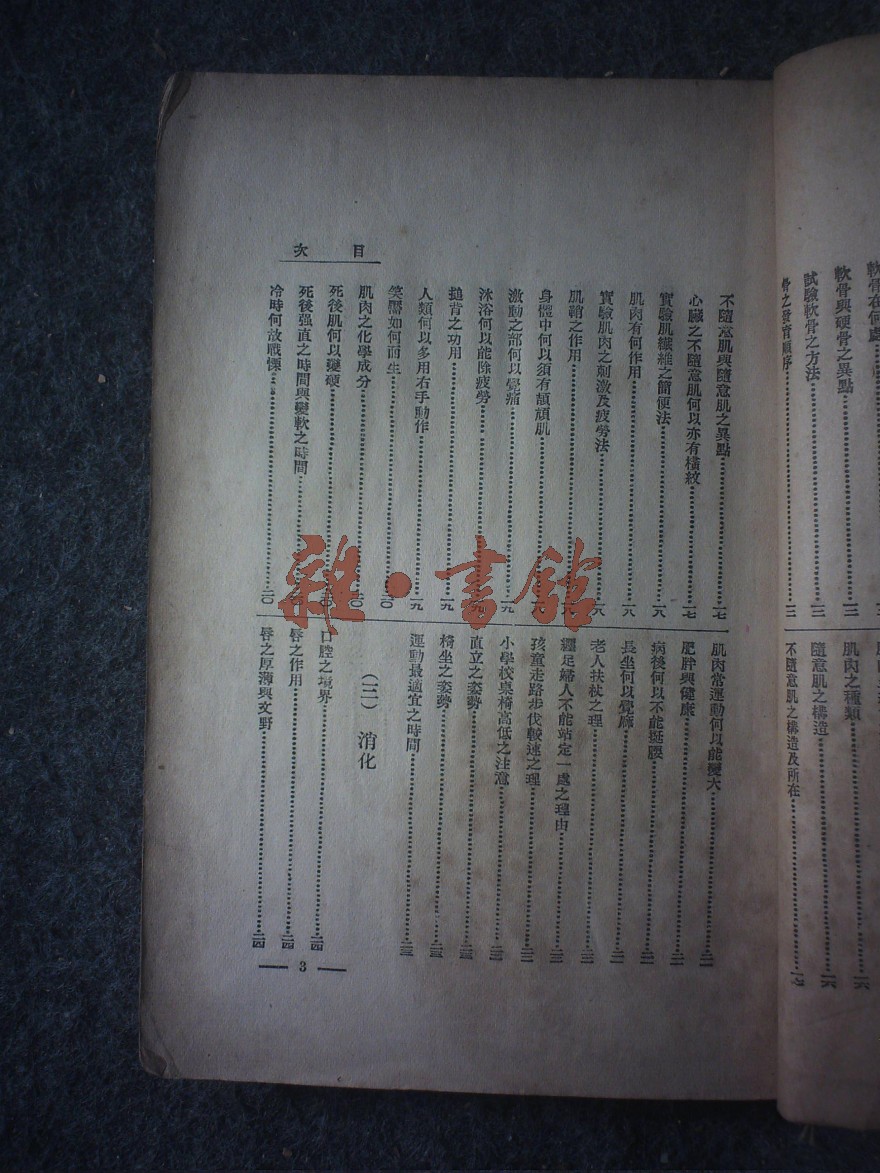 軟骨在何處
軟骨與硬骨之異點………三
試驗軟骨之方法………三
骨之發育順序………三
肌肉之種類………一六
隨意肌之構造………一六
不隨意肌之構造及所在
目次
不隨意肌與隨意肌之異點………一七
心臟之不隨意肌何以亦有橫紋………一七
實驗肌纖維之簡便法………一八
肌肉有何作用………一八
實驗肌肉之刺激及疲勞法………一八
肌鞘之作用
身體中何以須有頡頏肌
激動之部何以覺痛………一九
沐浴何以能除疲勞
搥背之功用………一九
人類何以多用右手動作………一九
笑靨如何而生………二〇
肌肉之化學成分………二〇
死後肌何以變硬………二〇
死後强直之時間與變軟之時間
冷時何故戰慄………二〇
肌肉常運動何以能變大………二一
肥胖與健康………二一
病後何以不能挺腰………二一
長坐何以覺麻………二一
老人扶杖之理………二一
纏足婦人不能站定一處之理由………二二
孩童走路步伐較速之理………二二
小學校桌椅高低之注意………二二
直立之姿勢………二三
椅坐之姿勢………二三
運動最適宜之時間………二三
（三）消化
口腔之境界………二四
唇之作用………二四
唇之厚薄與文野………二四
3
雜·書館